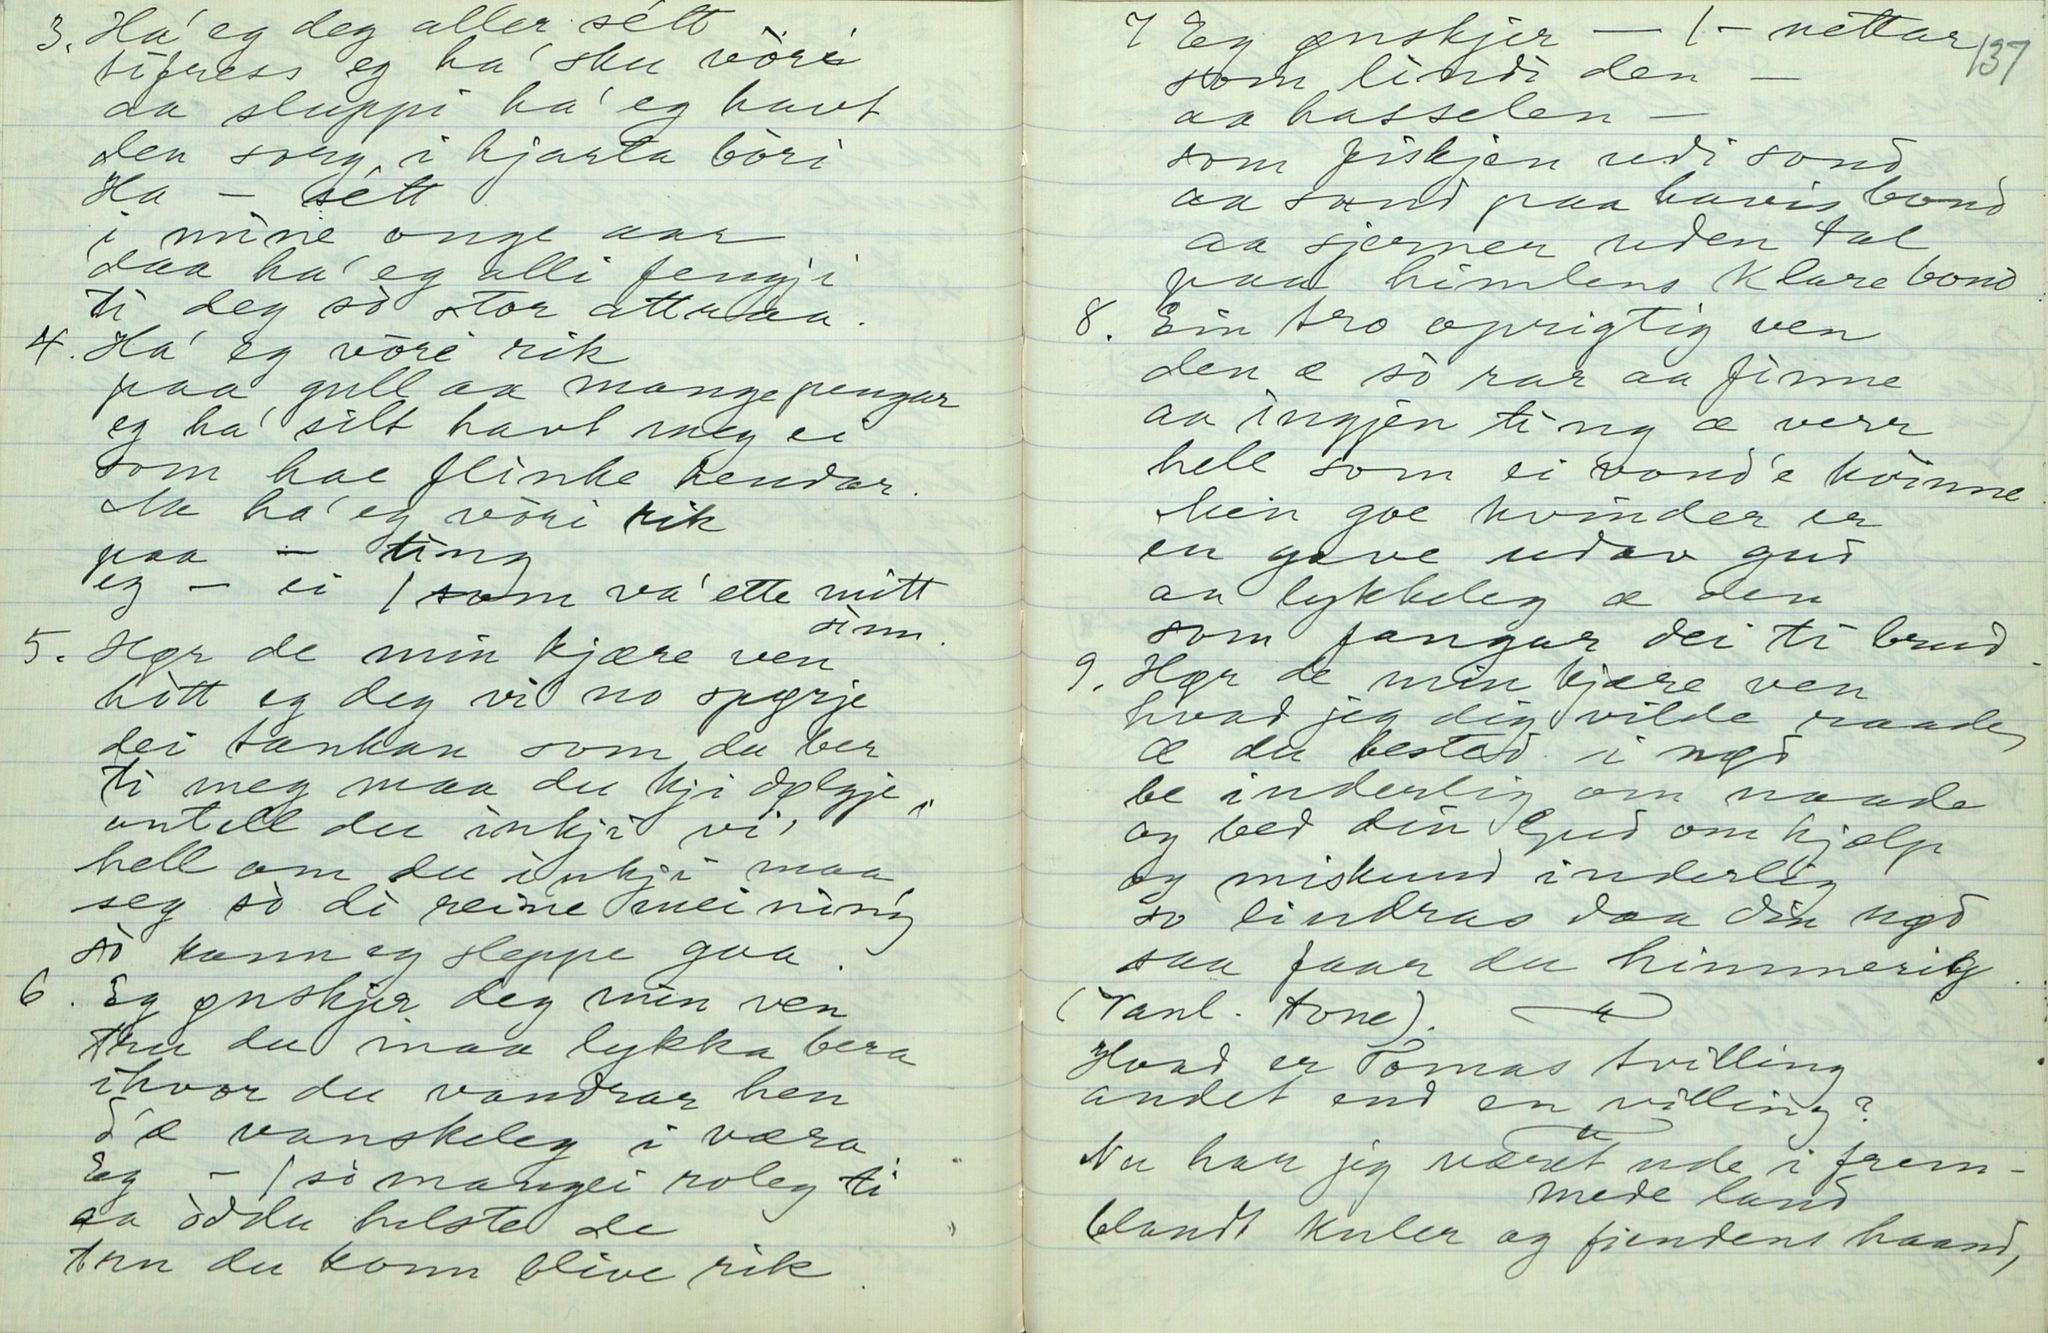 3. Ha' eg deg aller sétt
tifress eg ha' sku vöri
aa sluppi ha' eg havt
den sorg i hjarta böri
Ha – sétt
i mine onge aar
daa ha' eg alli fengji
ti deg sò stor attraa.
4. Ha' eg vöri rik
paa gull aa mange pengar
eg ha' silt havt meg ei
som hae flinke hendar.
Ha ha' eg vöri rik
paa – ting
eg – ei / som va' ette mitt
sinn.
5. Hør de min kjære ven
hòtt eg deg vi no spørje
dei tankan som du ber
ti meg maa du kji dølgje
antell du inkji vi'
hell om du inkji maa
seg sò di reine meining
sò kann eg sleppe gaa.
6. Eg ønskjer deg min ven
tru du maa lykka bera
ihvor du vandrar hen
d'æ vanskeleg i væra
Eg – / sò mangei roleg ti
aa òddu helste de
tru du konn blive rik.
137
7 Eg ønskjer – / – nettar
som lindi den –
aa hasselen –
som fiskjen udi sond
aa sand paa havis bond
aa sjerner uden tal
paa himlens klare bond
8. Ein tro oprigtig ven
den æ sò rar aa finne
aa ingjen ting æ verr
hell som ei vond'e kvinne
Men goe kvinder er
en gave udav gud
aa lykkeleg æ den
som fangar dei ti brud.
9. Hør de min kjære ven
hvad jeg dig vilde raade,
æ du bested i nød
be inderlig om naade
og bed din Gud om hjælp
og miskund inderlig
so lindras daa din nød
saa faar du himmerig.
(Vanl. tone).
Hvad er Tomas tvilling
andet end en villing?
Nu har jeg været ude i frem-
mede land
blandt kuler og fiendens haand,